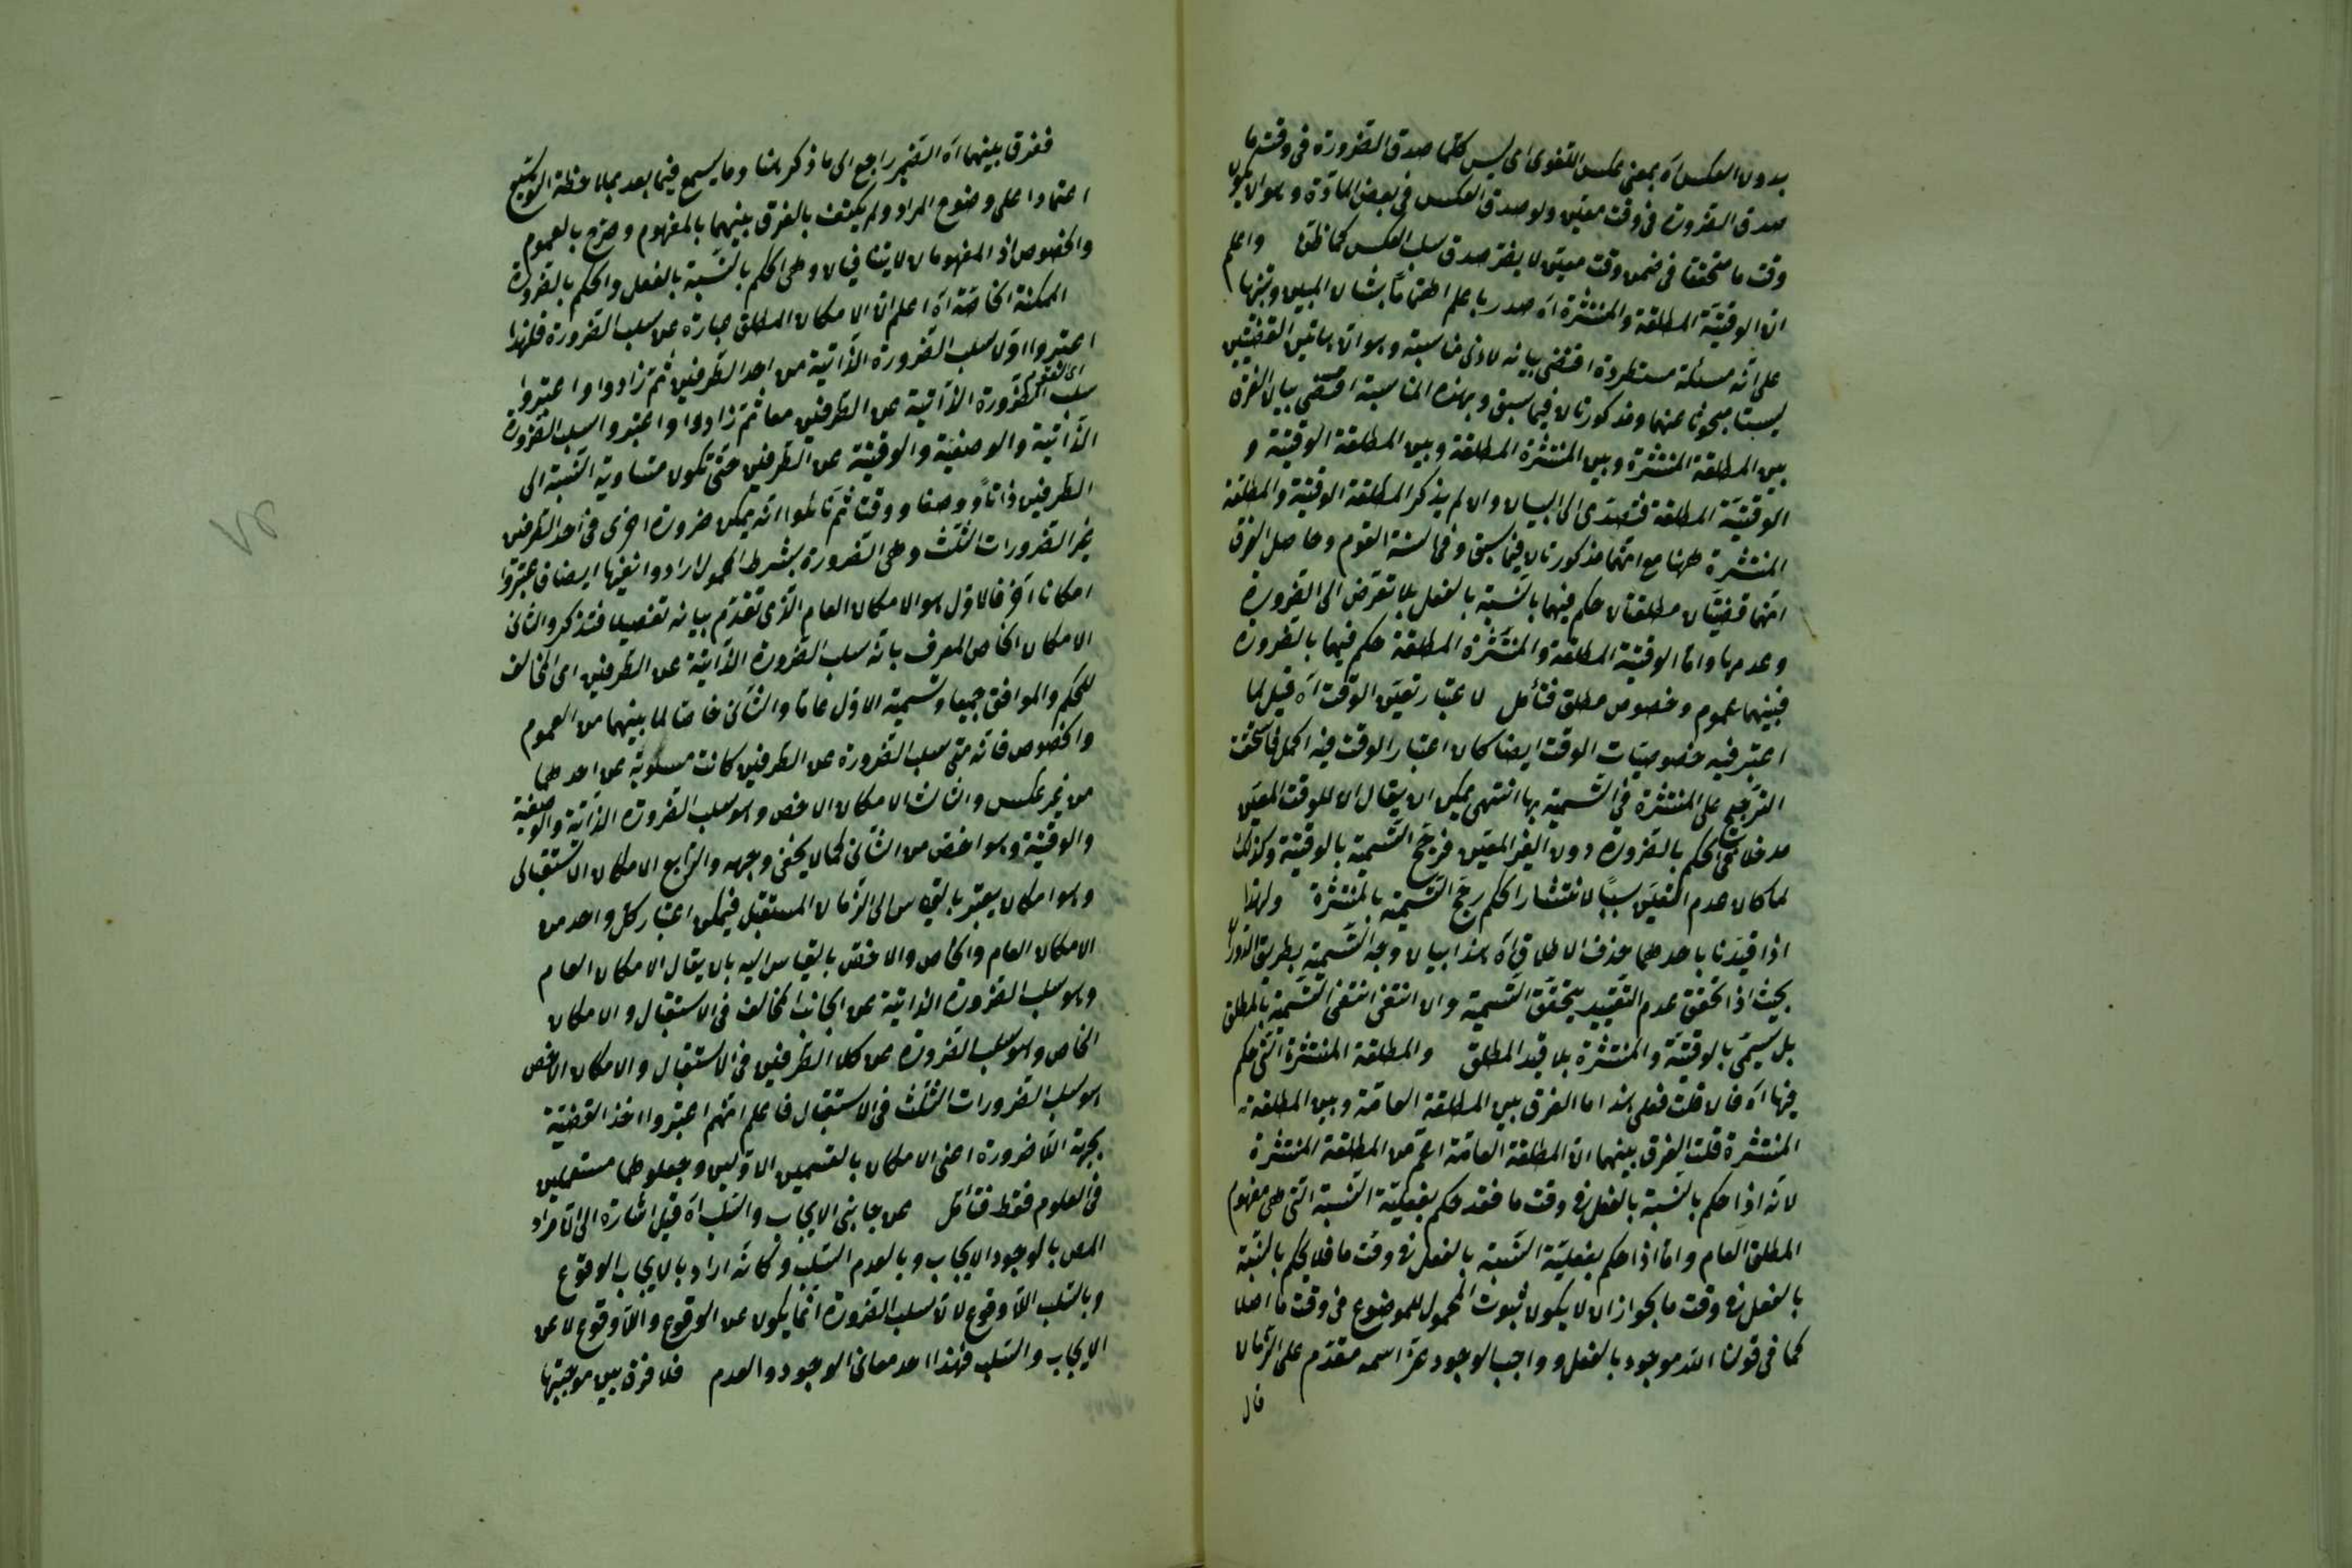 بدون العكس آه بمعنى عكس اللغوى اى ليس كلما صدق الضرورة فى وقت ما
صدق الضرورة فى وقت معين ولو صدق العكس فى بعض المادة وهو ان يكون
وقت ما متحققا فى ضمن وقت معين لا يضر صدق سلب العكس كما ظن واعلم
ان الوقتية المطلقة والمنتشرة آه صدر باعلم اهتماما بشان المبين وتنبيها
على انه مسئلة مستطردة اقتضى بيانه لادنى مناسبة وهو ان هاتين القضيتين
ليست مبحوثا عنهما ومذكورتان فيما سبق وبهذه المناسبة اقتضى بيان الفرق
بين المطلقة المنتشرة وبين المنتشرة المطلقة وبين المطلقة الوقتية و
الوقتية المطلقة فتصدى الى البيان وان لم يذكر المطلقة الوقتية والمطلقة
المنتشرة ههنا مع انهما مذكورتان فيما سبق وفى السنة القوم وحاصل الفرق
انهما قضيتان مطلقتان حكم فيهما بالنسبة بالفعل بلا تعرض الى الضرورة
وعدمها واما الوقتية المطلقة والمنتشرة المطلقة حكم فيهما بالضرورة
فبينهما عموم وخصوص مطلق فتأمل لاعتبار تعين الوقت آه قيل لما
اعتبر فيه خصوصيات الوقت ايضا كان اعتبار الوقت فيه اكمل فاستحقت
الترجيح على المنتشرة فى التسمية بها انتهى يمكن ان يقال ان للوقت المعين
مدخلا فى الحكم بالضرورة دون الغير المعين فرجح التسمية بالوقتية وكذلك
لما كان عدم التعين سببا لانتشار الحكم رجح التسمية بالمنتشرة ولهذا
اذا قيدنا باحدهما حذف الاطلاق آه هذا بيان وجه التسمية بطريق الدوران
بحيث اذا تحقق عدم التقييد يتحقق التسمية وان انتفى انتفى التسمية بالمطلق
بل سمى بالوقتية والمنتشرة بلا قيد المطلق والمطلقة المنتشرة التى حكم
فيها آه فان قلت فعلى هذا ما الفرق بين المطلقة العامة وبين المطلقة
المنتشرة قلت الفرق بينهما ان المطلقة العامة اعم من المطلقة المنتشرة
لانه اذا حكم بالنسبة بالفعل فى وقت ما فقد حكم بفعلية النسبة التى هى مفهوم
المطلق العام واما اذا حكم بفعلية النسبة بالفعل فى وقت ما فلا يحكم بالنسبة
بالفعل فى وقت ما بجواز ان لا يكون ثبوت المحمول للموضوع فى وقت ما اصلا
كما فى قولنا الله موجود بالفعل وواجب الوجود عز اسمه مقدم على الزمان
قال
ففرق بينهما آه الضمير راجع الى ما ذكر هنا وما يسمع فيما بعد بملاحظة التوسيع
اعتمادا على وضوح المراد ولم يكتف بالفرق بينهما بالمفهوم وصرح بالعموم
والخصوص اذ المفهومان لا يتنافيان وهى الحكم بالنسبة بالفعل والحكم بالضرورة
الممكنة الخاصة آه اعلم ان الامكان المطلق عبارة عن سلب الضرورة فلهذا
اعتبروا اولا سلب الضرورة الذاتية من احد الطرفين ثم زادوا واعتبروا
اى القوم
سلب الضرورة الذاتية عن الطرفين معا ثم زادوا واعتبروا سلب الضرورة
الذاتية والوصفية والوقتية عن الطرفين حتى تكون متساوية النسبة الى
الطرفين ذاتا ووصفا ووقتا ثم تأملوا انه يمكن ضرورة اخرى فى احد الطرفين
غير الضرورات الثلث وهى الضرورة بشرط المحمول ارادوا نفيها ايضا فاعتبروا
امكانا آخر فالاول هو الامكان العام الذى تقدم بيانه تفصيلا فتذكر والثانى
الامكان الخاص المعرف بانه سلب الضرورة الذاتية عن الطرفين اى المخالف
للحكم والموافق جميعا وتسمية الاول عاما والثانى خاصا لما بينهما من العموم
والخصوص فانه متى سلب الضرورة عن الطرفين كانت مسلوبة عن احدهما
من غير عكس والثالث الامكان الاخص وهو سلب الضرورة الذاتية والوصفية
والوقتية وهو اخص من الثانى كما لا يخفى وجهه والرابع الامكان الاستقبالى
وهو امكان يعتبر بالقياس الى الزمان المستقبل فيمكن اعتبار كل واحد من
الامكان العام والخاص والاخص بالقياس اليه بان يقال الامكان العام
وهو سلب الضرورة الذاتية عن الجانب المخالف فى الاستقبال والامكان
الخاص وهو سلب الضرورة عن كلا الطرفين فى الاستقبال والامكان الاخص
هو سلب الضرورات الثلث فى الاستقبال فاعلم انهم اعتبروا اخذ القضية
بجهة اللاضرورة اعنى الامكان بالقسمين الاولين وجعلوهما مستعملين
فى العلوم فقط فتأمل عن جانبى الايجاب والسلب آه قيل اشارة الى ان مراد
المص بالوجود الايجاب وبالعدم السلب وكانه اراد بالايجاب الوقوع
وبالسلب اللاوقوع لان سلب الضرورة انما يكون عن الوقوع واللاوقوع لا عن
الايجاب والسلب فهذا احد معانى الوجود والعدم فلا فرق بين موجبتها